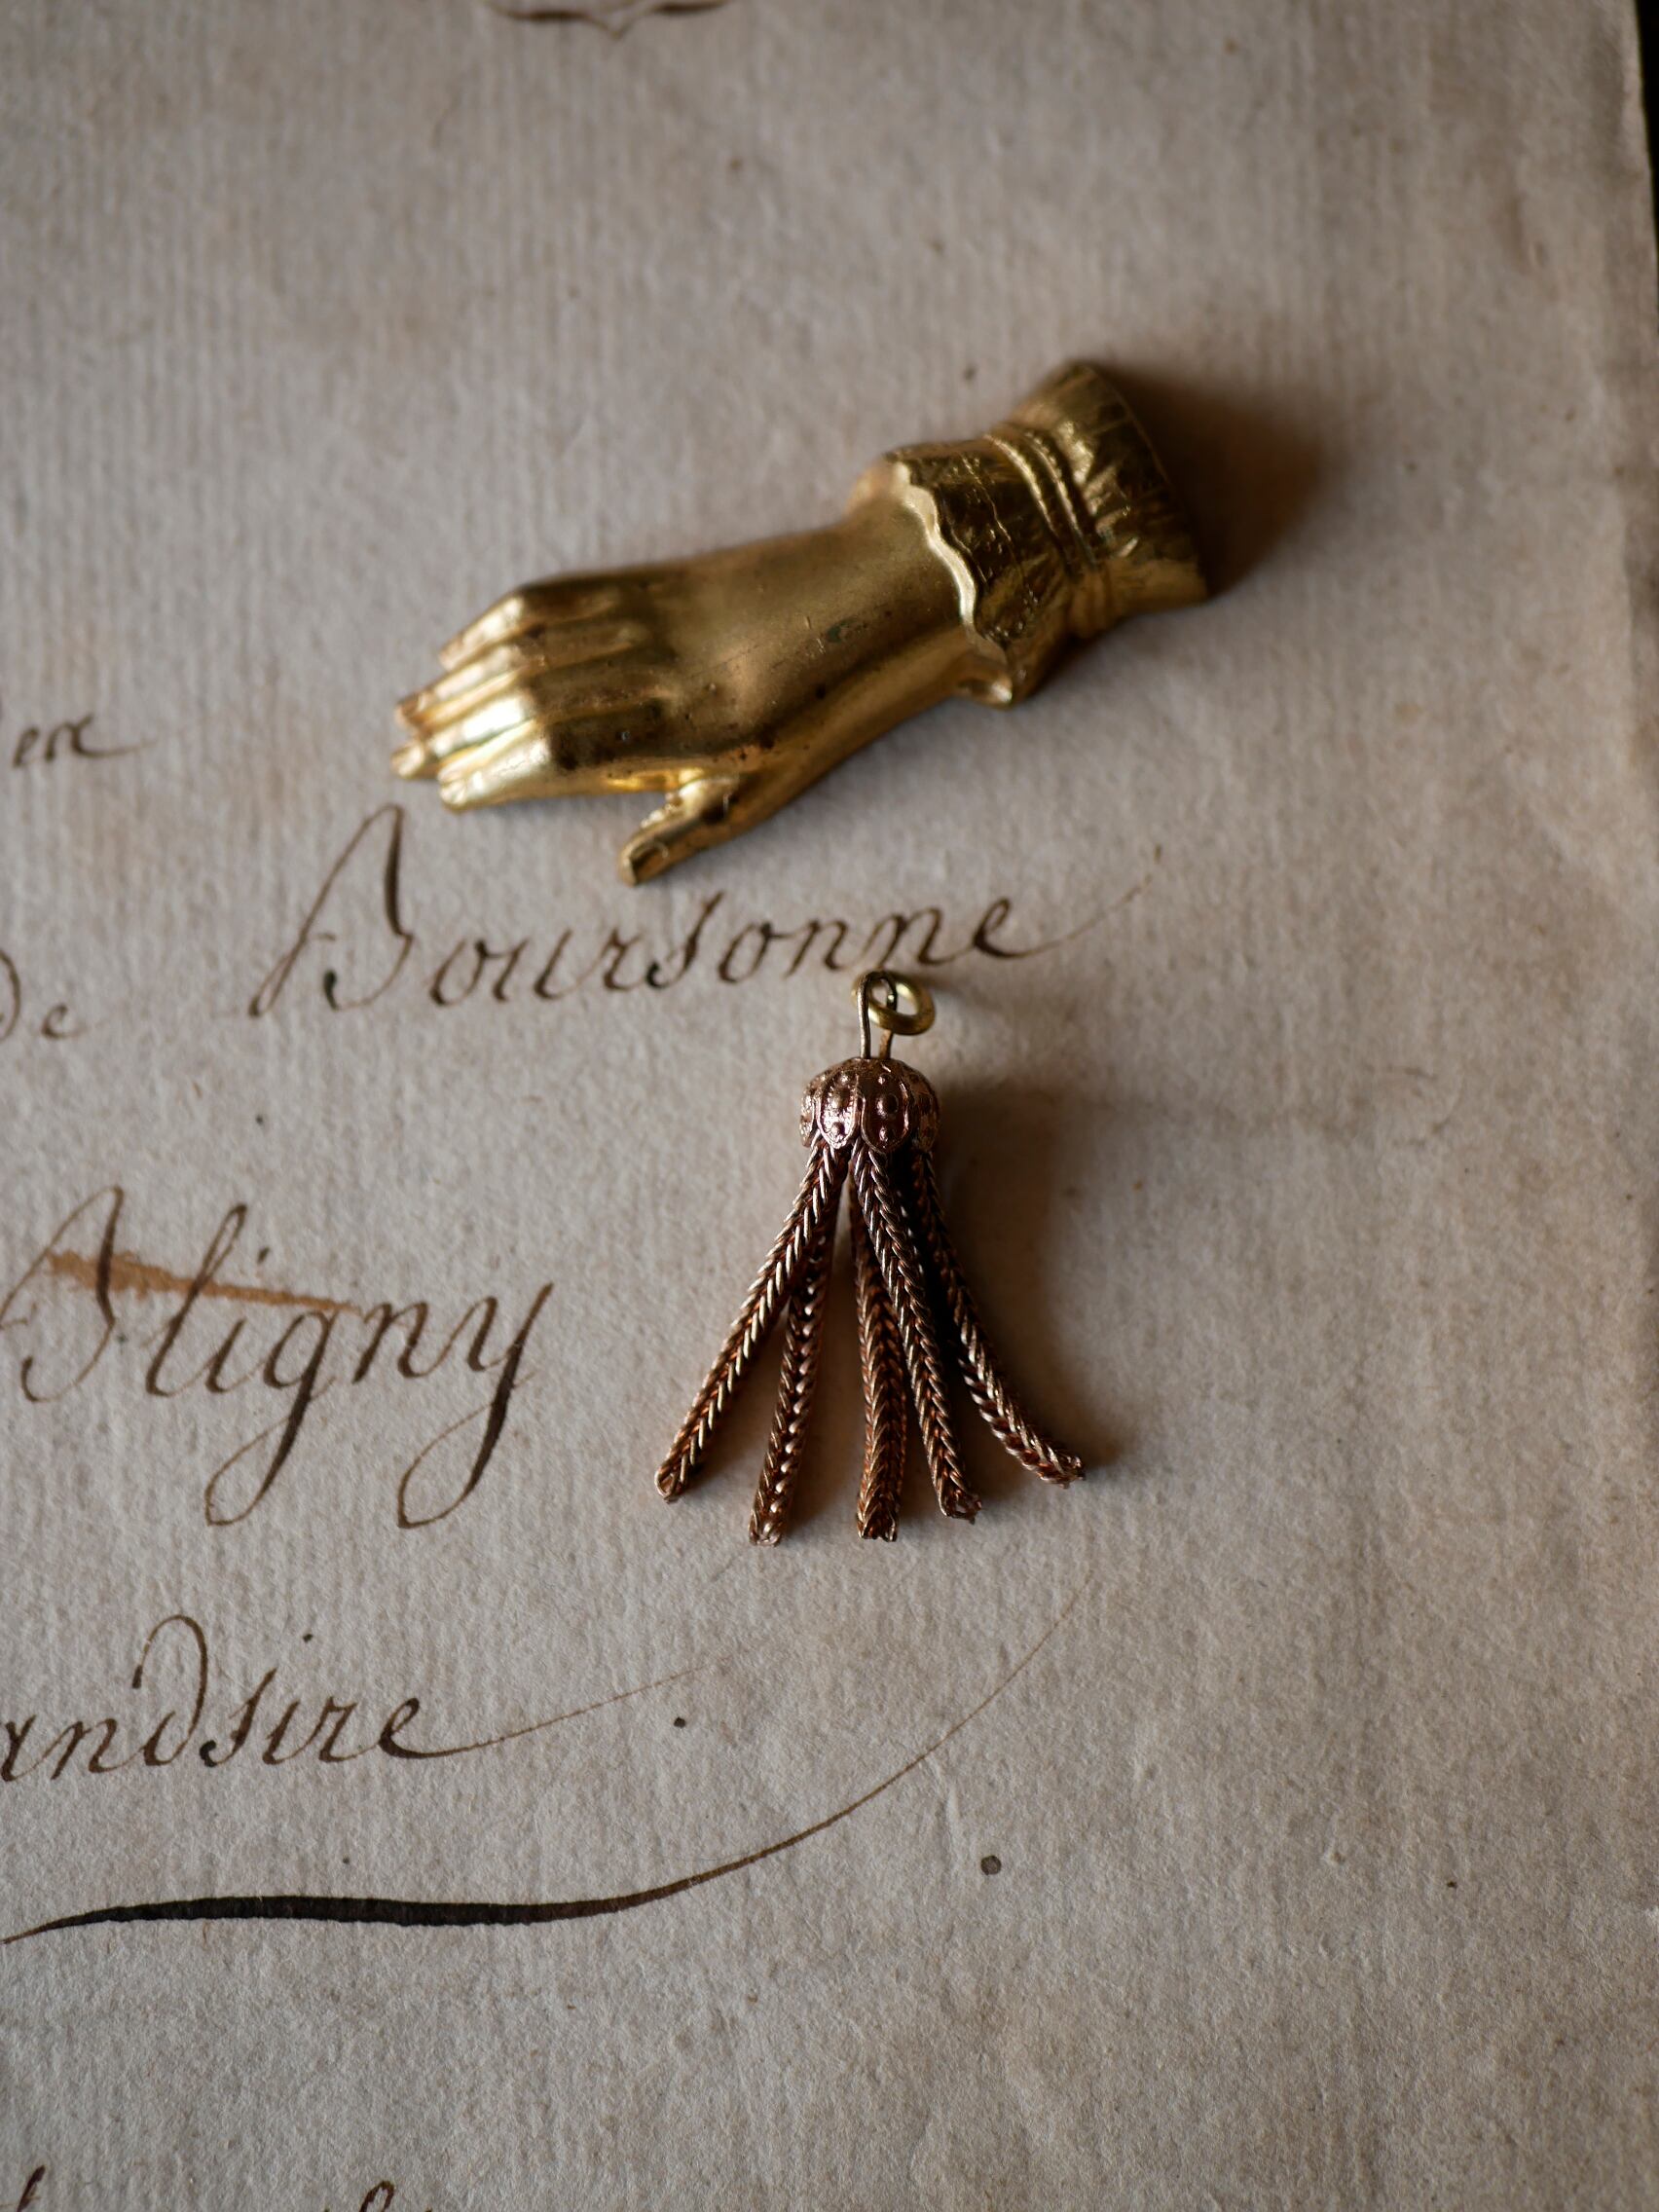 de Boursonne
Bligny
andsire